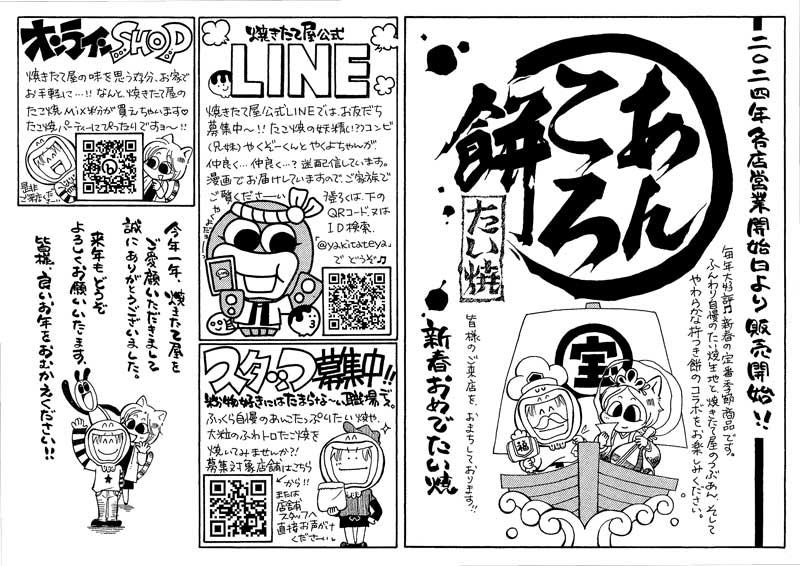 二〇二四年各店営業開始日より販売開始!!
あん
ころ
餅
たい焼
毎年大好評♫新春の定番季節商品です。
ふんわり自慢のたい焼生地と、焼きたて屋のつぶあん、そして
やわらかな杵つき餅のコラボをお楽しみください。
宝
福
皆様のご来店を、おまちしております!!
新春おめでたい焼
焼きたて屋公式
LINE
焼きたて屋公式LINEでは、お友だち
募集中〜!! たこ焼の妖精(!?)コンビ
(兄妹)やくぞーくんとやくよちゃんが
仲良く…仲良く…?迷配信しています。
漫画でお届けしていますので、ご家族で
ご覧くださーい
登ろくは、下の
QRコード又は
ID検索
「@yakitateya」
でどうぞ♫
スタッフ募集中!!
粉物好きにはたまらな〜い職場です。
ふっくら自慢のあんこたっぷりたい焼や、
大粒のふわトロたこ焼を
焼いてみませんか?!
募集対象店舗はこちら
から!!
または
店舗
スタッフへ
直接お声がけ
ください〜
オンラインSHOP
焼きたて屋の味を思う存分、お家で
お手軽にて…!! なんと、焼きたて屋の
たこ焼Mix粉が買えちゃいます♡
たこ焼パーティーにぴったりですヨ〜!!
是非
ご来店ください
今年一年、焼きたて屋を
ご愛顧いただきまして
誠にありがとうございました。
来年もどうぞ
よろしくお願いいたします。
皆様、良いお年をおむかえください!!